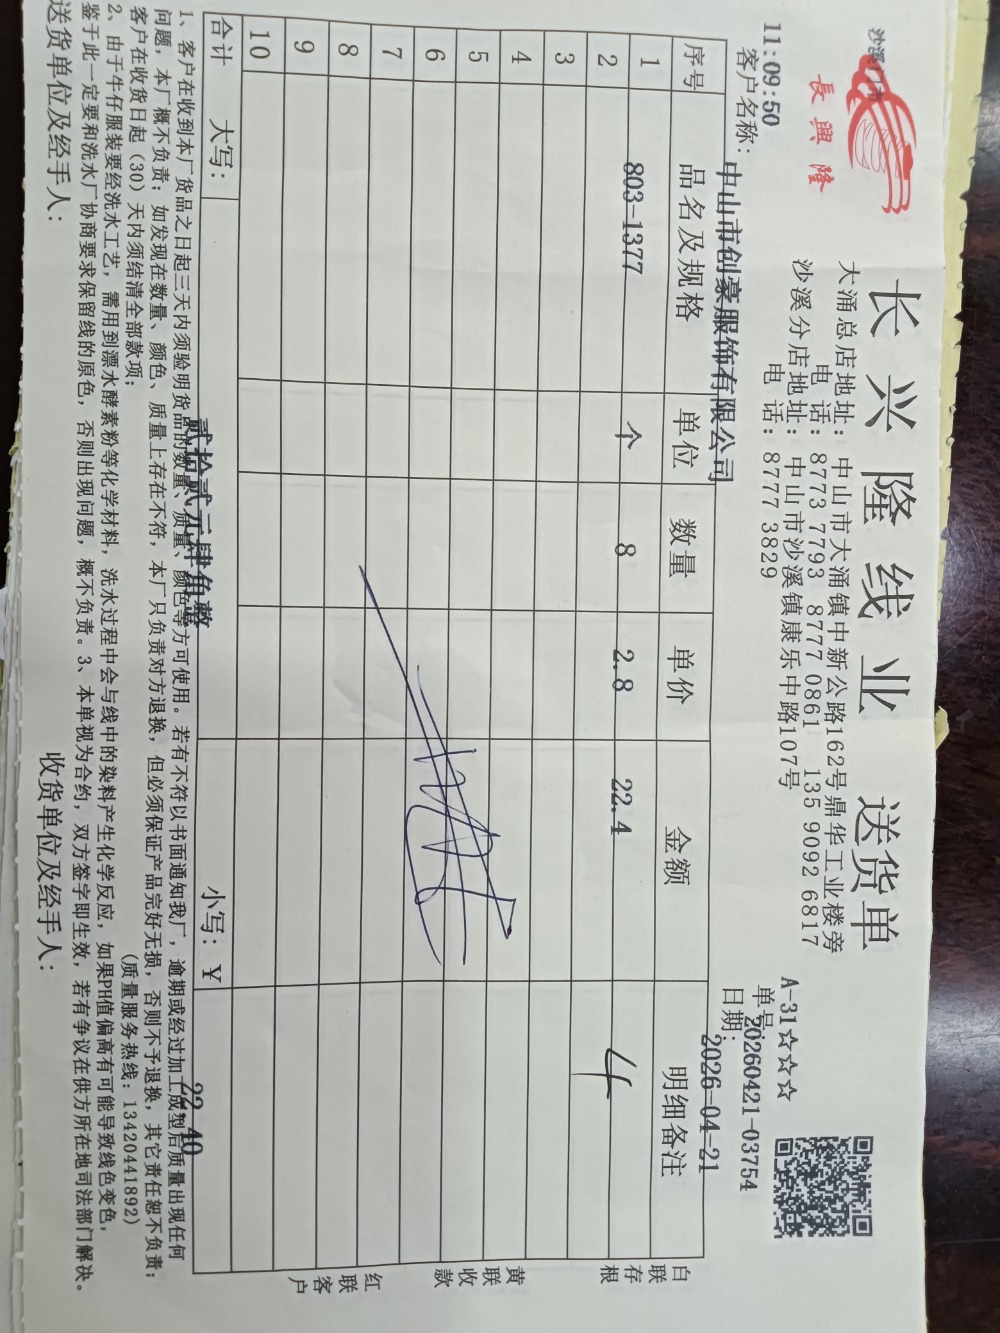 長興隆
长兴隆线业 送货单
大涌总店地址：中山市大涌镇中新公路162号鼎华工业楼旁
电 话：8773 7793 8777 0861 135 9092 6817
沙溪分店地址：中山市沙溪镇康乐中路107号
电 话：8777 3829
A-31☆☆☆☆
11:09:50
单号：20260421-03754
客户名称：中山市创豪服饰有限公司
日期：2026-04-21
序号 品名及规格 单位 数量 单价 金额 明细备注
1 803-1377 个 8 2.8 22.4 4
2
3
4
5
6
7
8
9
10
合计 大写：贰拾贰元肆角整 小写：¥ 22.40
白联存根
黄联收款
红联客户
1、客户在收到本厂货品之日起三天内须验明货品的数量、质量、颜色等方可使用。若有不符以书面通知我厂，逾期或经过加工成型后质量出现任何
问题，本厂概不负责；如发现在数量、颜色、质量上存在不符，本厂只负责对方退换，但必须保证产品完好无损，否则不予退换，其它责任恕不负责；
客户在收货日起（30）天内须结清全部款项； （质量服务热线：13420441892）
2、由于牛仔服装要经洗水工艺，需用到漂水酵素粉等化学材料，洗水过程中会与线中的染料产生化学反应，如果PH值偏高有可能导致线色变色，
鉴于此一定要和洗水厂协商要求保留线的原色，否则出现问题，概不负责。3、本单视为合约，双方签字即生效，若有争议在供方所在地司法部门解决。
送货单位及经手人： 收货单位及经手人：